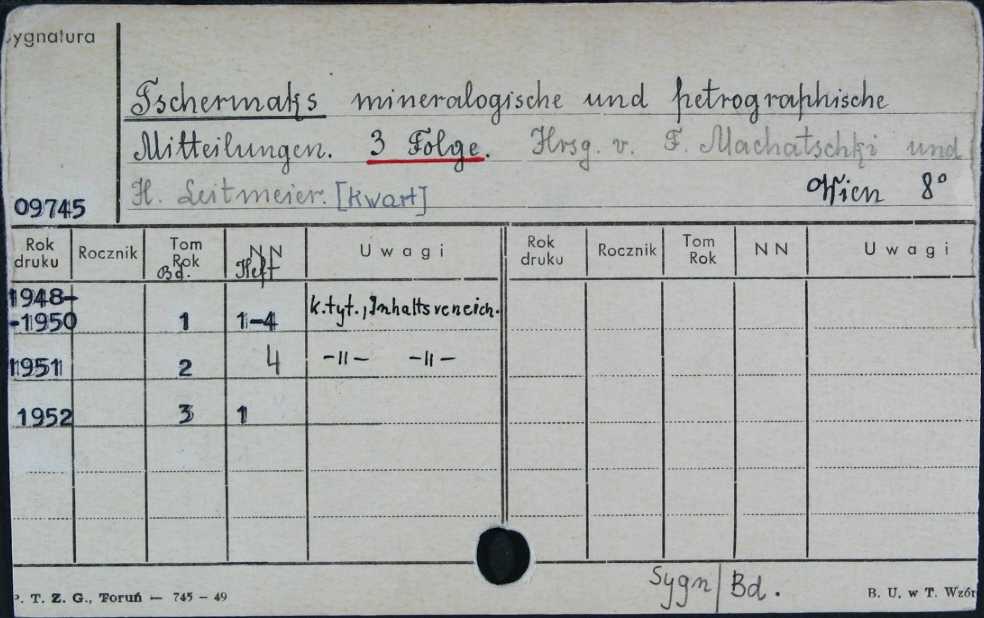 ygnatura
Tschermaks mineralogische und petrographische
Mitteilungen. 3 Folge. Hrsg. v. F. Machatschki und
H. Leitmeier. [kwart] Wien 8°
09745
Rok druku Rocznik Tom Rok Bd. NN Heft Uwagi Rok druku Rocznik Tom Rok NN Uwagi
1948-
-1950 1 1-4 k.tyt., Inhaltsverzeich.
1951 2 4 -"- -"-
1952 3 1
Sygn/Bd.
P. T. Z. G., Toruń — 745 – 49 B. U. w T. Wzór